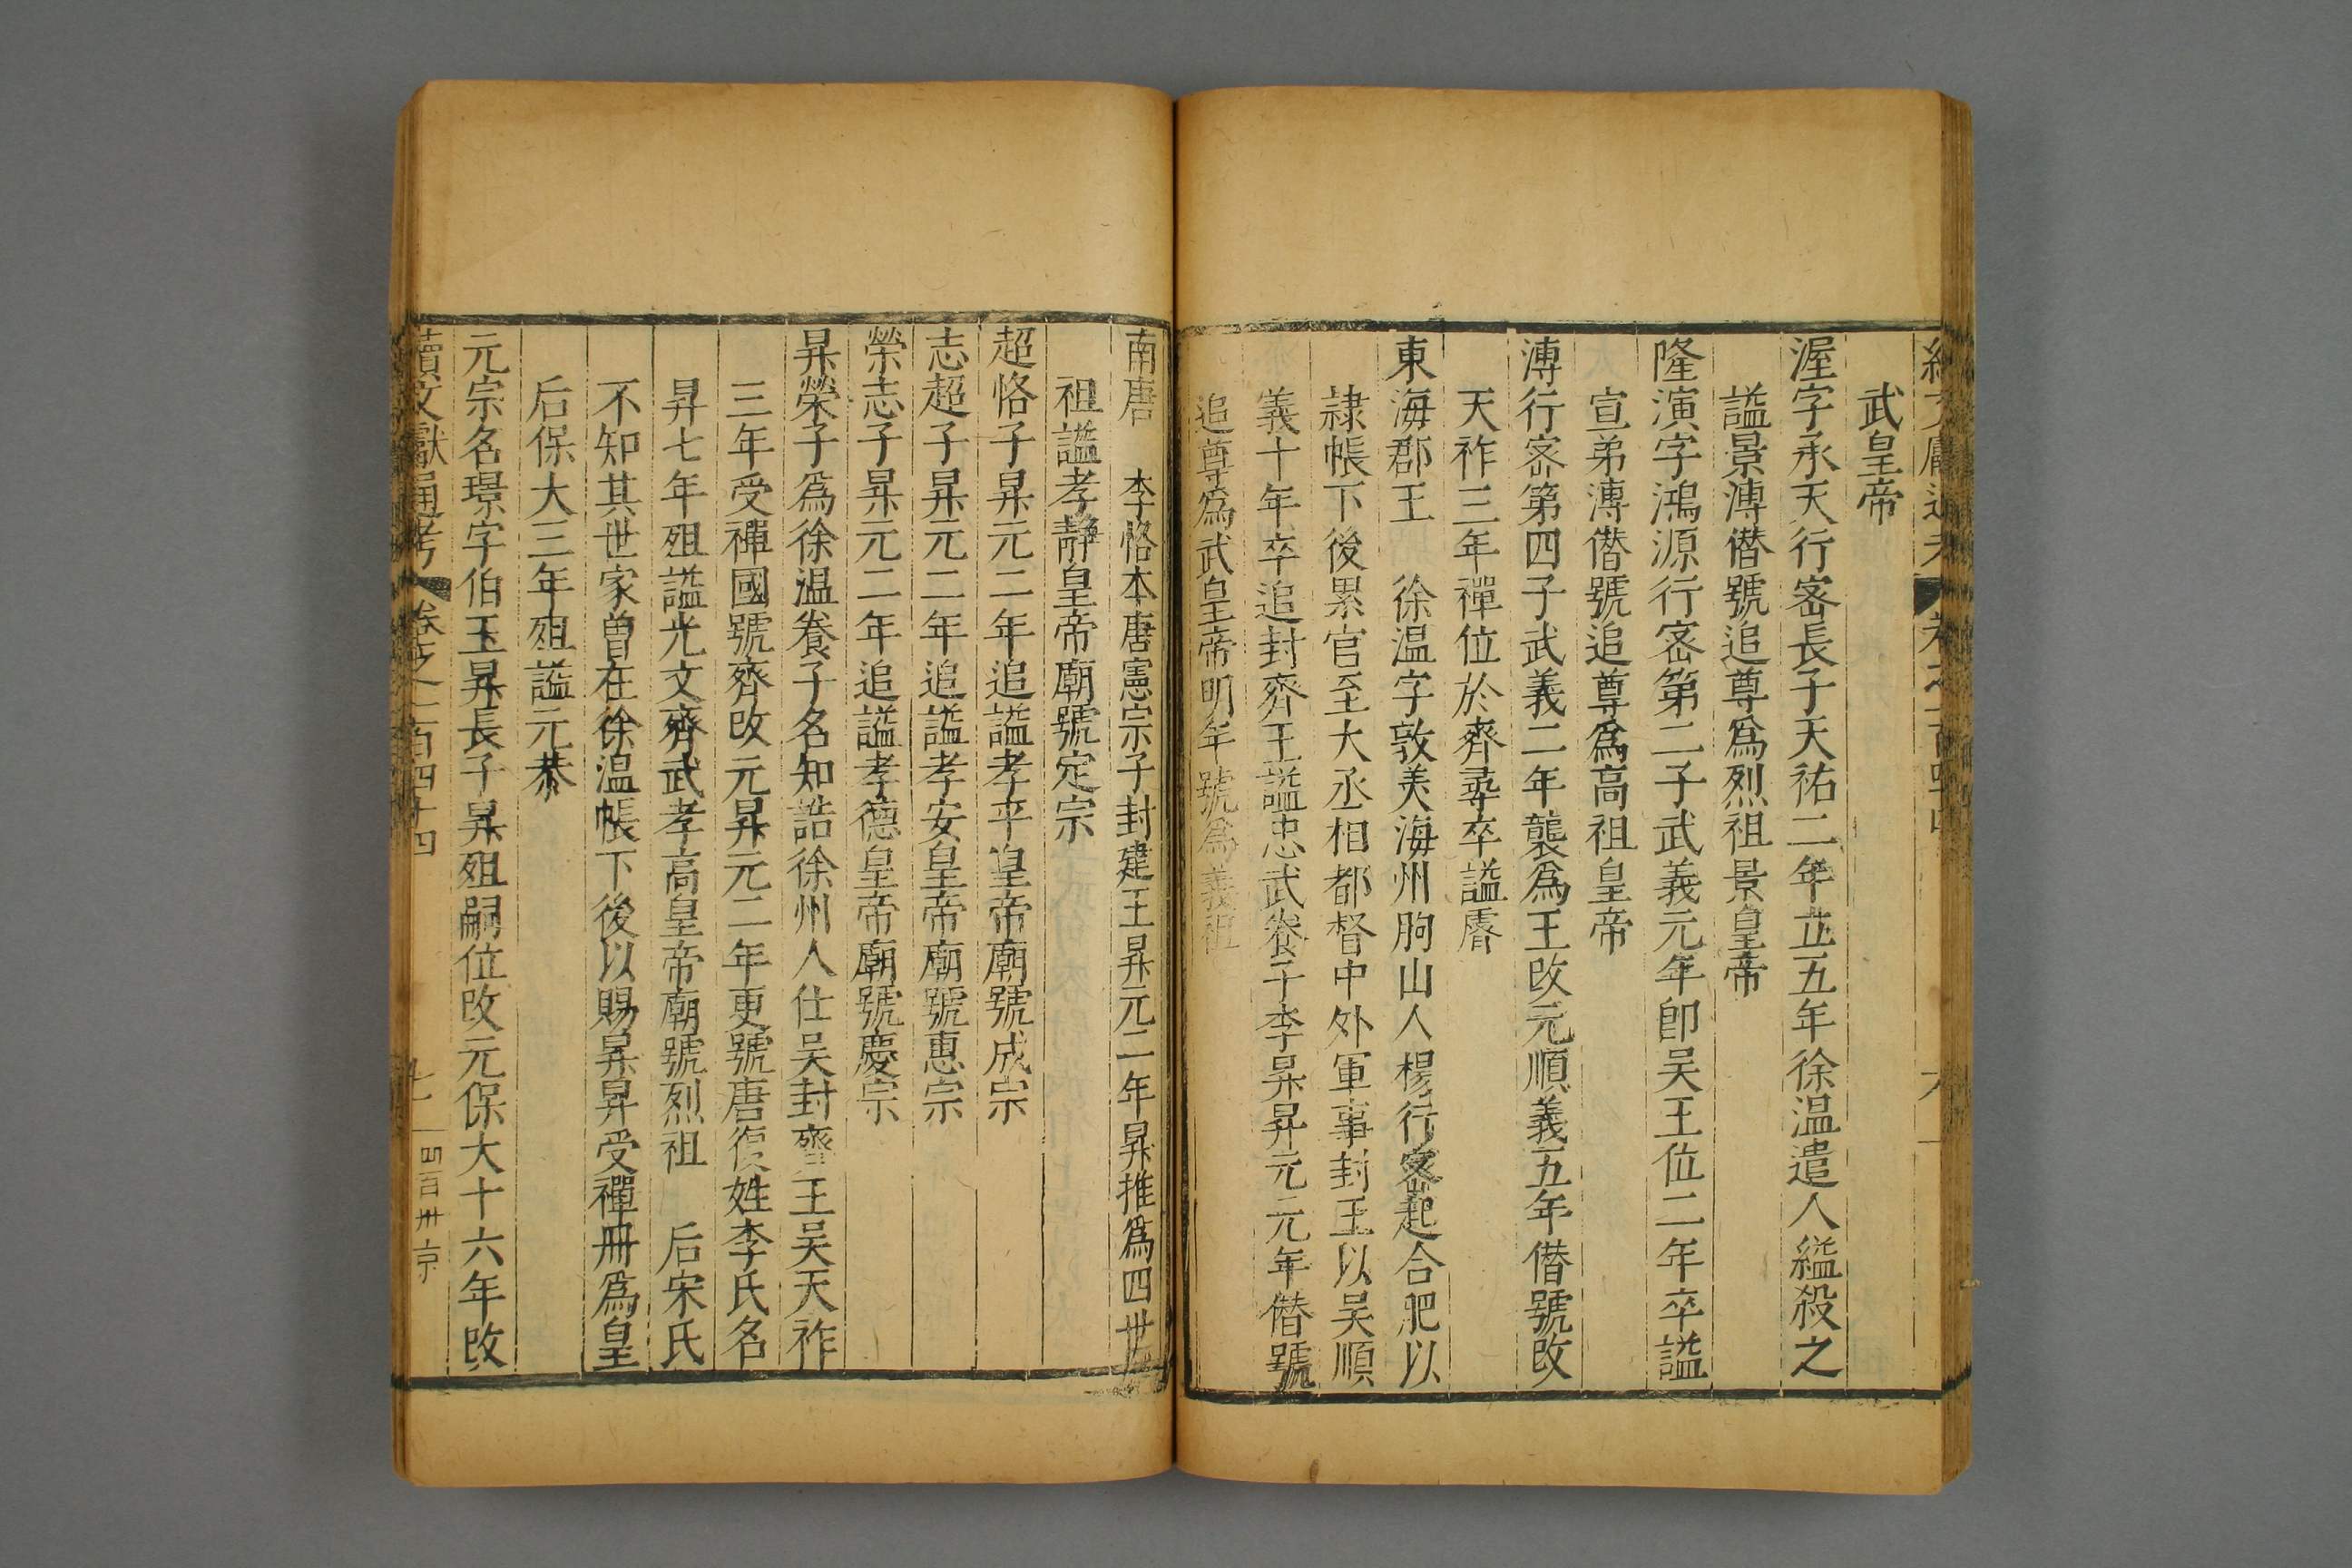 武皇帝
渥字承天行宻長子天祐二年立五年徐温遣人縊殺之
謚景溥僣號追尊爲烈祖景皇帝
隆演字鴻源行宻第二子武義元年即吴王位二年卒謚
宣弟溥僣號追尊爲高祖皇帝
溥行宻第四子武義二年襲爲王改元順義五年僣號改
天祚三年禪位於齊尋卒謚
東海郡王 徐温字敦美海州朐山人楊行宻起合肥以
隷帳下後累官至大丞相都督中外軍事封王以吴順
義十年卒追封齊王謚忠武養子李昪昇元元年僣號
追尊爲武皇帝明年號爲義祖
南唐 李恪本唐憲宗子封建王昇元二年昪推爲四世
祖謚孝靜皇帝廟號定宗
超恪子昪元二年追謚孝平皇帝廟號成宗
志超子昪元二年追謚孝安皇帝廟號惠宗
榮志子昪元二年追謚孝德皇帝廟號慶宗
昪榮子爲徐温養子名知誥徐州人仕吴封齊王吴天祚
三年受禪國號齊改元昇元二年更號唐復姓李氏名
昪七年殂謚光文肅武孝高皇帝廟號烈祖 后宋氏
不知其世家曽在徐温帳下後以賜昪昪受禪冊爲皇
后保大三年殂謚元恭
元宗名璟字伯玉昪長子昪殂嗣位改元保大十六年改
續文獻通考 卷之二百四十四 七 四百卅 京